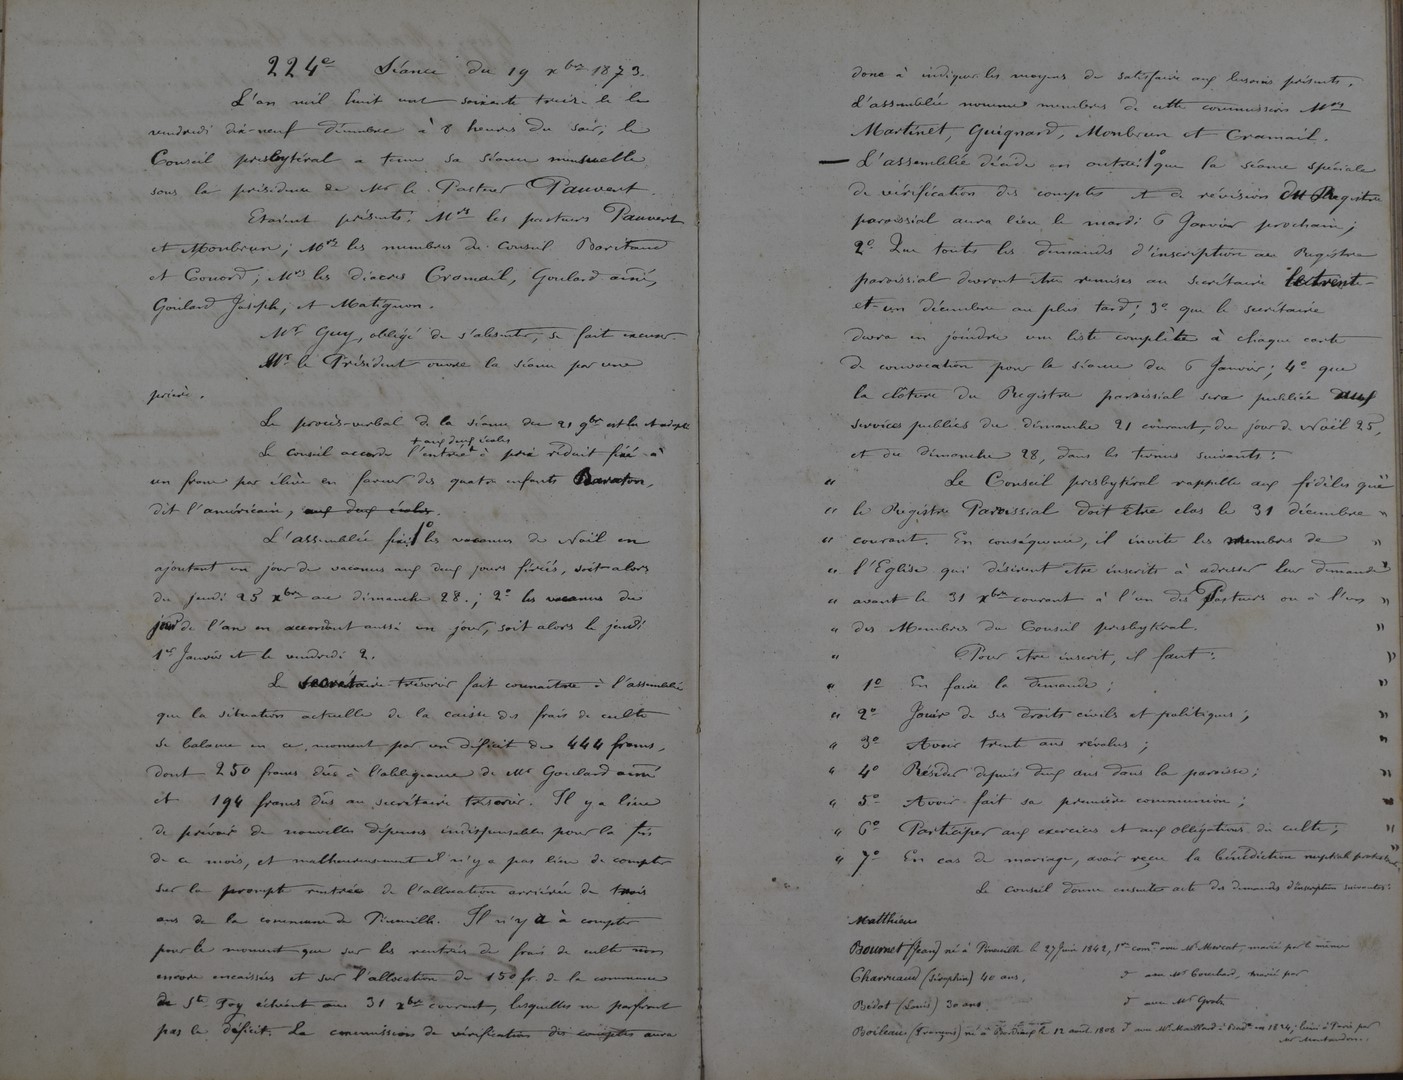 224e Séance du 19 xbre 1873.
L'an mil huit cent soixante treize le
vendredi dix-neuf décembre à 8 heures du soir, le
Conseil presbytéral a tenu sa séance mensuelle
sous la présidence de Mr le Pasteur Pauvert.
Etaient présents: Mrs les pasteurs Pauvert
et Monbrun; Mrs les membres du Conseil
et Conord; Mrs les diacres Cramail, Goulard ainé,
Goulard Joseph, et Matignon.
Mr Guy, obligé de s'absenter, se fait excuser.
Mr le Président ouvre la séance par une
prière.
Le procès-verbal de la séance du 21 9bre est lu et adopté
+ aux deux écoles
Le conseil accorde l'entrée + à prix réduit fixé à
un franc par élève en faveur des quatre enfants Baraton,
dit l'américain, aux deux écoles.
L'assemblée fixe 1° les vacances de Noël en
ajoutant un jour de vacances aux deux jours fériés, soit alors
du jeudi 25 xbre au dimanche 28.; 2° les vacances du
jour de l'an en accordant aussi un jour, soit alors le jeudi
1er Janvier et le vendredi 2.
Le secrétaire-trésorier fait connaître à l'assemblée
que la situation actuelle de la caisse des frais de culte
se balance en ce moment par un déficit de 444 francs,
dont 250 francs dûs à l'obligeance de Mr Goulard ainé
et 194 francs dûs au secrétaire trésorier. Il y a lieu
de prévoir de nouvelles dépenses indispensables pour la fin
de ce mois, et malheureusement il n'y a pas lieu de compter
sur la prompte rentrée de l'allocation arriérée de trois
ans de la commune de Pineuilh. Il n'y a à compter
pour le moment que sur les rentrées de frais de culte non
encore encaissées et sur l'allocation de 150 fr. de la commune
de Ste Foy échéant au 31 xbre courant, lesquelles ne parferont
pas le déficit. La commission de vérification des comptes aura
donc à indiquer les moyens de satisfaire aux besoins présents.
L'assemblée nomme membres de cette commission Mrs
Martinet, Guignard, Monbrun et Cramail.
— L'assemblée décide en outre: 1° que la séance spéciale
de vérification des comptes et de révision du Registre
paroissial aura lieu le mardi 6 Janvier prochain;
2° Que toutes les demandes d'inscription au Registre
paroissial devront être remises au secrétaire le trente-
et-un décembre au plus tard; 3° que le secrétaire
devra en joindre une liste complète à chaque carte
de convocation pour la séance du 6 Janvier; 4° que
la clôture du Registre paroissial sera publiée aux
services publics du dimanche 21 courant, du jour de Noël 25,
et du dimanche 28, dans les termes suivants:
" Le Conseil presbytéral rappelle aux fidèles que "
" le Registre Paroissial doit être clos le 31 décembre "
" courant. En conséquence, il invite les membres de "
" l'Eglise qui désirent être inscrits à adresser leur demande "
" avant le 31 xbre courant à l'un des Pasteurs ou à l'un "
" des Membres du Conseil presbytéral. "
" Pour être inscrit, il faut: "
" 1° En faire la demande; "
" 2° Jouir de ses droits civils et politiques; "
" 3° Avoir trente ans révolus; "
" 4° Résider depuis deux ans dans la paroisse; "
" 5° Avoir fait sa première communion; "
" 6° Participer aux exercices et aux obligations du culte; "
" 7° En cas de mariage, avoir reçu la bénédiction nuptiale protestante. "
Le Conseil donne ensuite acte des demandes d'inscription suivantes:
Matthieu
Bournet (Jean) né à Pineuilh le 27 Juin 1842, 1re comon avec Mr Mercat, marié par le même
Charriaud (Séraphin) 40 ans, d° avec Mr Couchard, marié par
Bidot (Louis) 30 ans d° avec Mr Grotz
Boileau (François) né à le 12 août 1808 d° avec Mr Maillard à en 1824; béni à Paris par
Mr